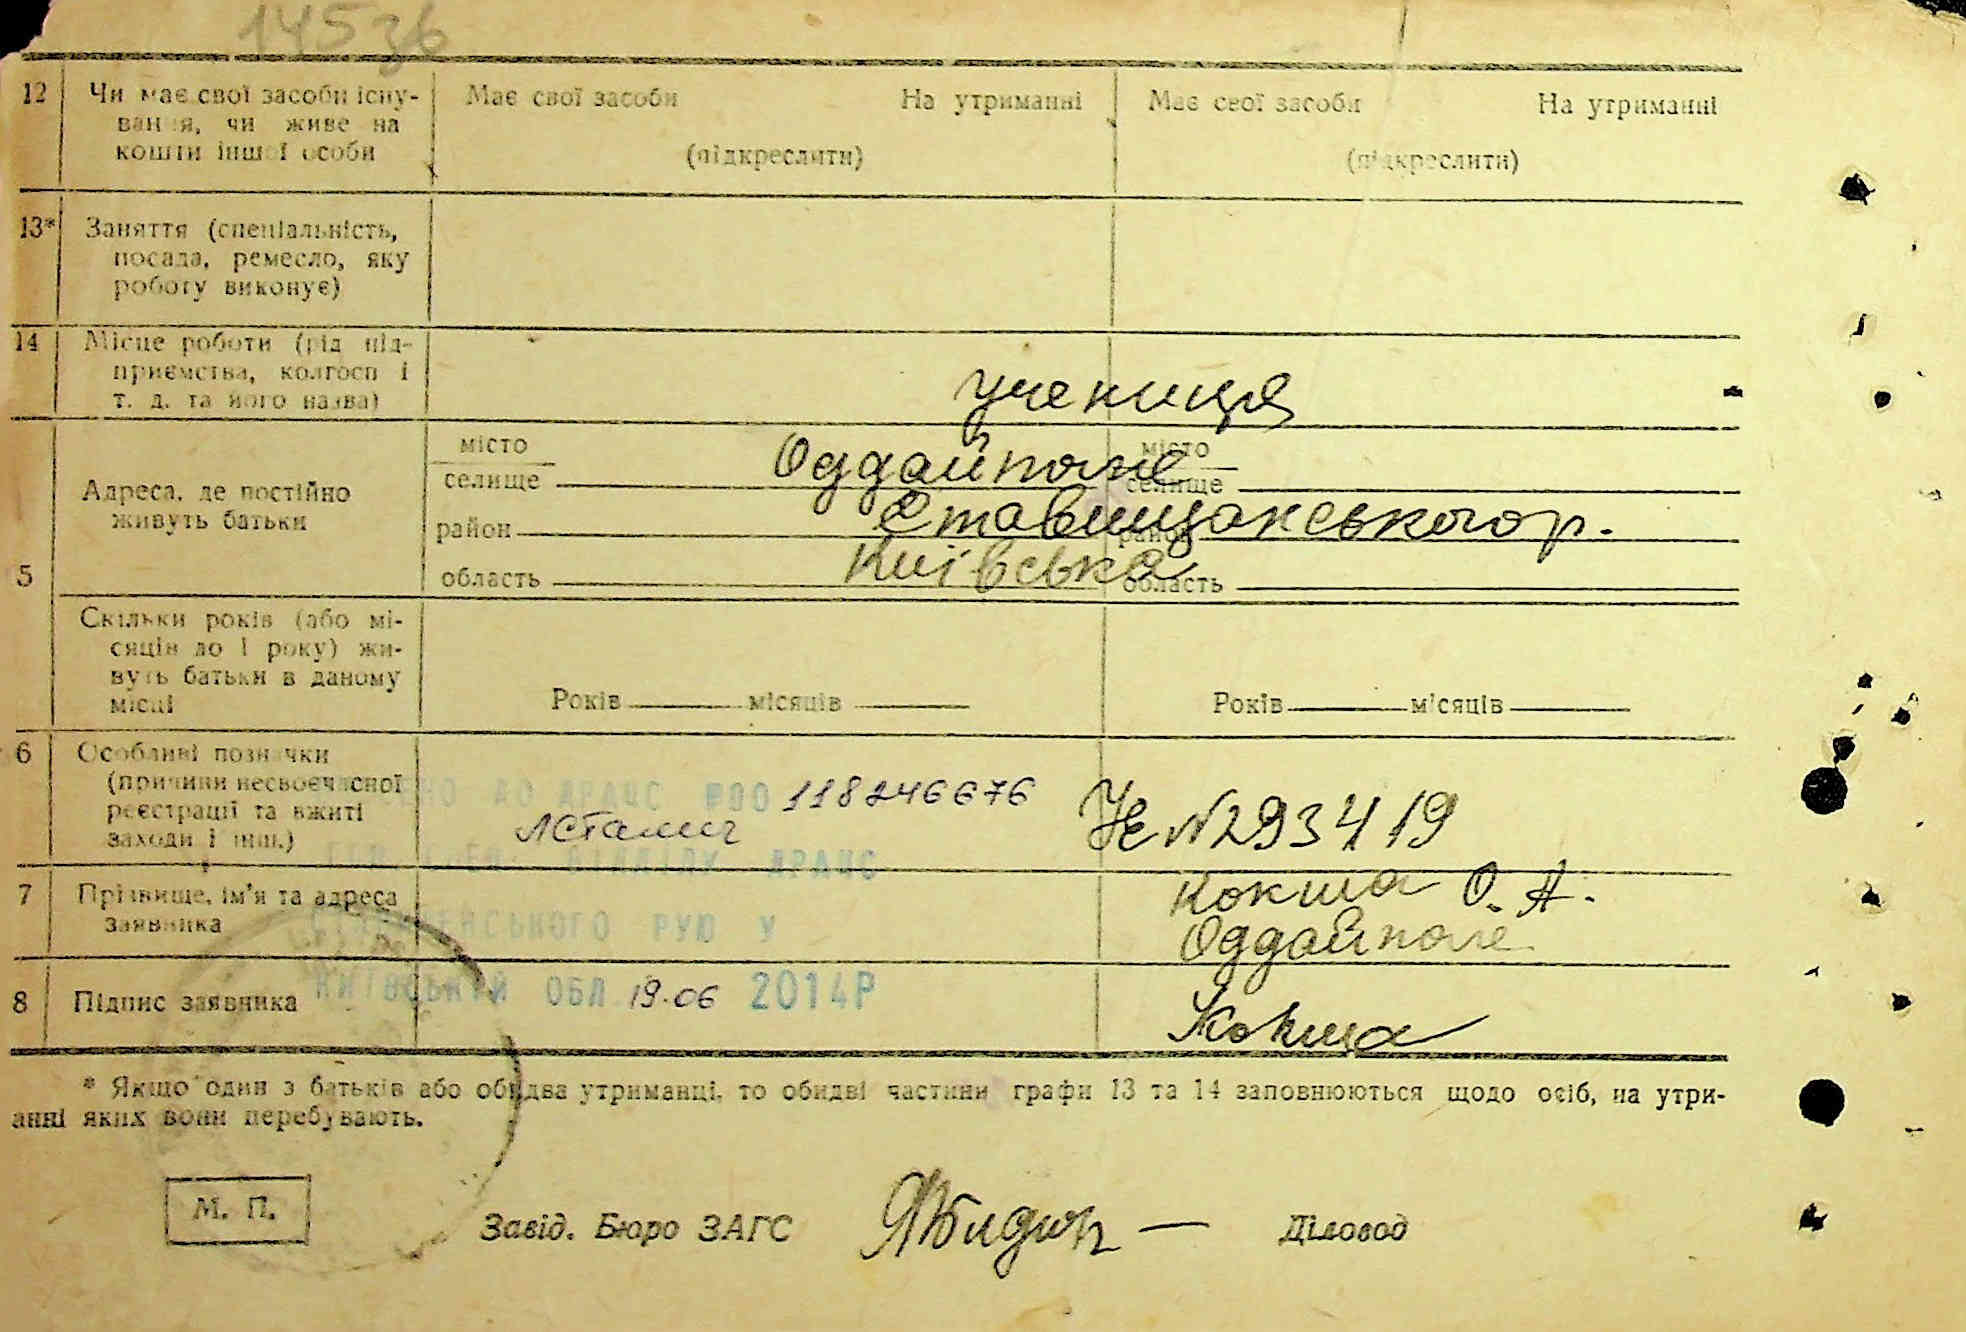 14536
12 Чи має свої засоби існу- Має свої засоби На утриманні Має свої засоби На утриманні
вання, чи живе на
кошти іншої особи (підкреслити) (підкреслити)
13* Заняття (спеціальність,
посада, ремесло, яку
роботу виконує)
14 Місце роботи (рід під-
приємства, колгосп і
т. д. та його назва) учениця
місто Оддайполе місто
Адреса, де постійно селище селище
живуть батьки район Ставищанського р. район
5 область Київська область
Скільки років (або мі-
сяців до 1 року) жи-
вуть батьки в даному
місці Років місяців Років місяців
6 Особливі позначки
(причини несвоєчасної ДО ДРАЦС 00118246676
реєстрації та вжиті № 293419
заходи і інш.)
ВІДДІЛУ ДРАЦС
7 Прізвище, ім'я та адреса Кокша О. А.
заявника РУЮ У Оддайполе
8 Підпис заявника КИЇВСЬКІЙ ОБЛ 19.06 2014Р Кокша
* Якщо один з батьків або обидва утриманці, то обидві частини графи 13 та 14 заповнюються щодо осіб, на утри-
анні яких вони перебувають.
М. П. Завід. Бюро ЗАГС Діловод